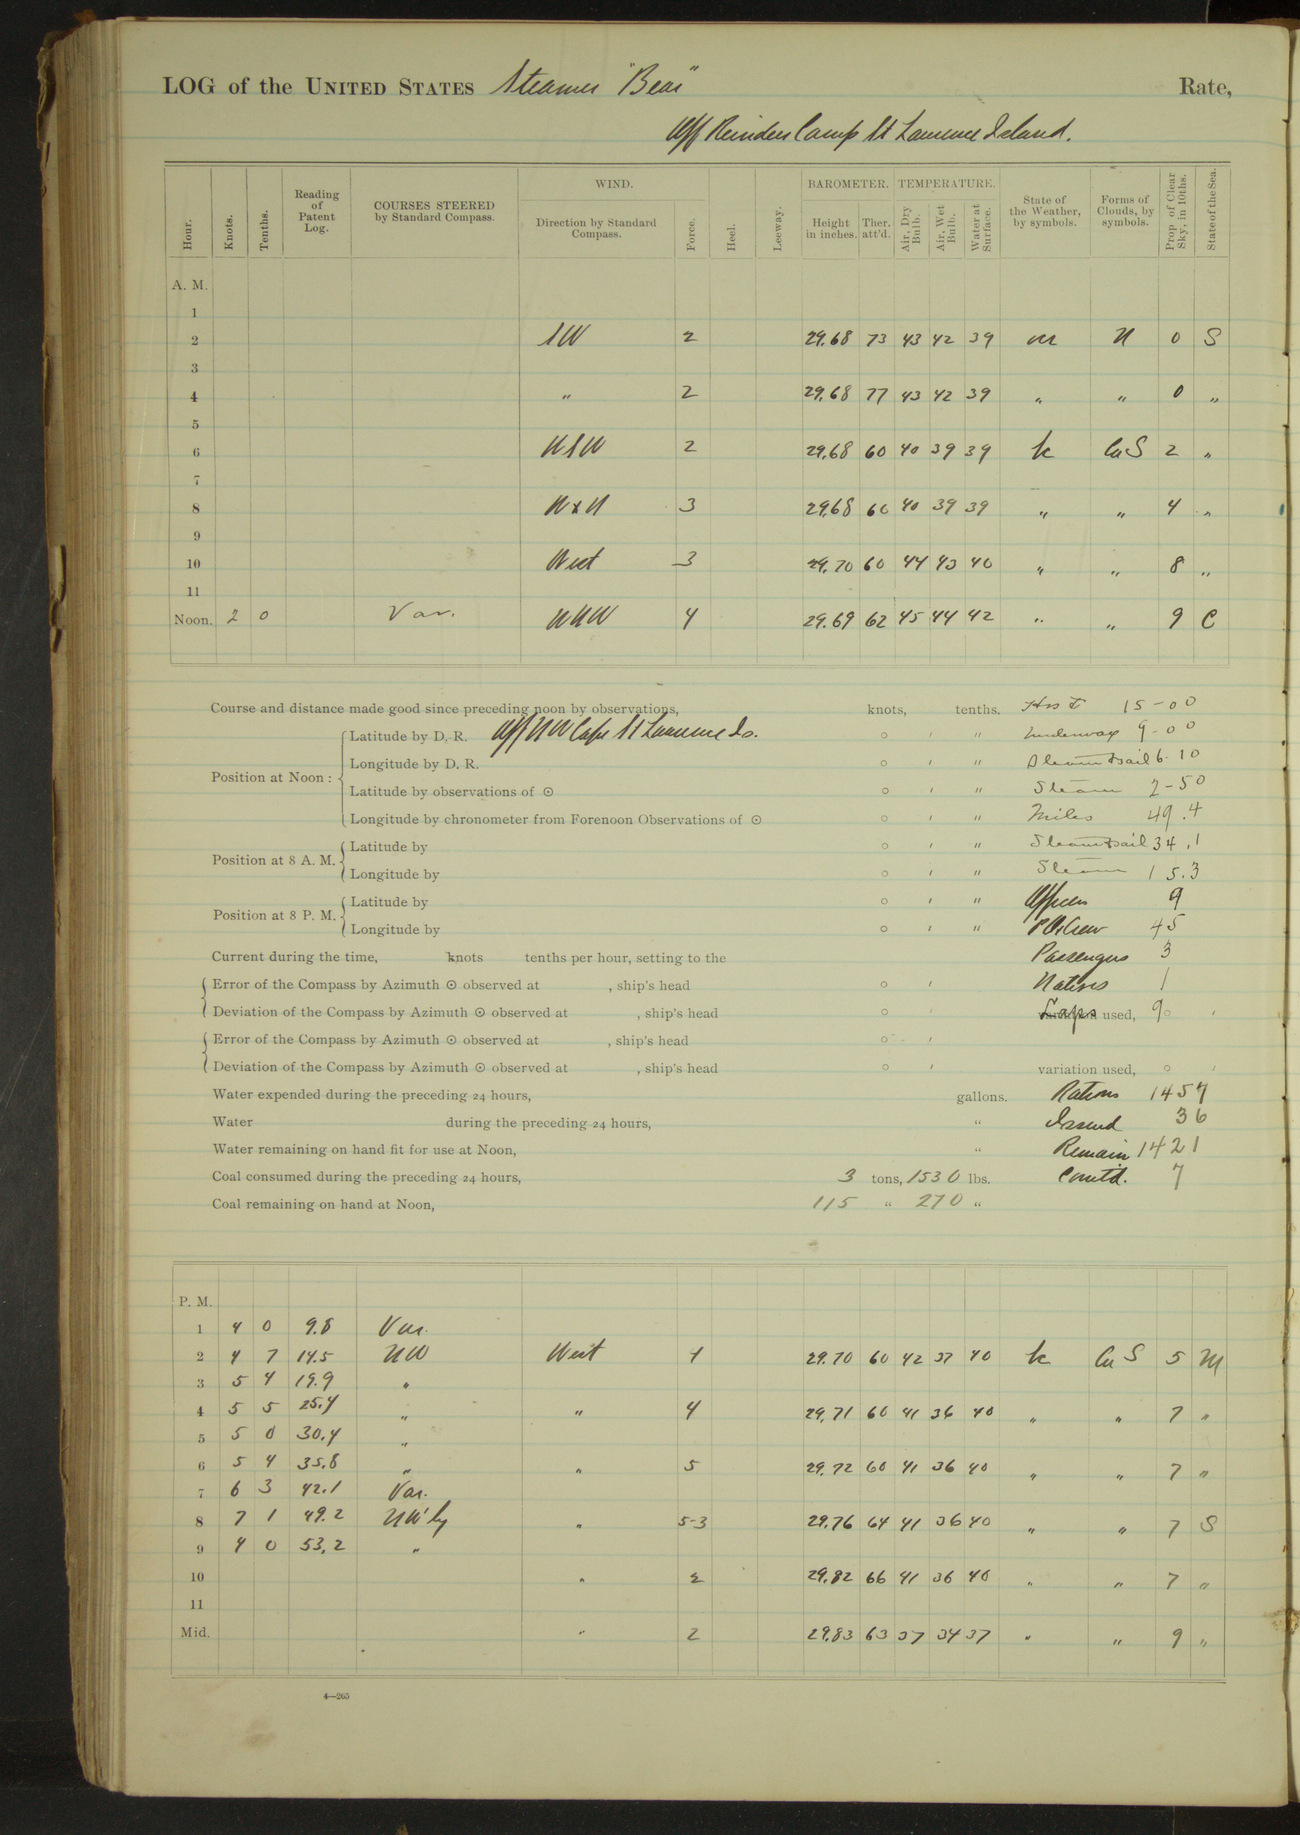 LOG of the UNITED STATES Steamer "Bear" Rate,
Off Reindeer Camp St Lawrence Island.
Hour. Knots. Tenths. Reading of Patent Log. COURSES STEERED by Standard Compass. WIND. Direction by Standard Compass. Force. Heel. Leeway. BAROMETER. Height in inches. Ther. att'd. TEMPERATURE. Air, Dry Bulb. Air, Wet Bulb. Water at Surface. State of the Weather, by symbols. Forms of Clouds, by symbols. Prop. of Clear Sky, in 10ths. State of the Sea.
A. M.
1
2 SW 2 29.68 73 43 42 39 or N 0 S
3
4 " 2 29.68 77 43 42 39 " " 0 "
5
6 WSW 2 29.68 60 40 39 39 bc CuS 2 "
7
8 WxN 3 29.68 60 40 39 39 " " 4 "
9
10 West 3 29.70 60 44 43 40 " " 8 "
11
Noon. 2 0 Var. WNW 4 29.69 62 45 44 42 " " 9 C
Course and distance made good since preceding noon by observations, knots, tenths. 15-00
Latitude by D. R. Off NW Cape St Lawrence Is. ° ′ ″ Underway 9-00
Longitude by D. R. ° ′ ″ Steam & sail 6-10
Position at Noon :
Latitude by observations of ☉ ° ′ ″ Steam 2-50
Longitude by chronometer from Forenoon Observations of ☉ ° ′ ″ Miles 49.4
Position at 8 A. M. Latitude by ° ′ ″ Steam & sail 34.1
Longitude by ° ′ ″ Steam 15.3
Position at 8 P. M. Latitude by ° ′ ″ Officers 9
Longitude by ° ′ ″ Crew 45
Current during the time, knots tenths per hour, setting to the Passengers 3
Error of the Compass by Azimuth ☉ observed at , ship's head ° ′ Natives 1
Deviation of the Compass by Azimuth ☉ observed at , ship's head ° ′ Laps used, 9 ° ′
Error of the Compass by Azimuth ☉ observed at , ship's head ° ′
Deviation of the Compass by Azimuth ☉ observed at , ship's head ° ′ variation used, ° ′
Water expended during the preceding 24 hours, gallons. Rations 1457
Water during the preceding 24 hours, " Issued 36
Water remaining on hand fit for use at Noon, " Remain 1421
Coal consumed during the preceding 24 hours, 3 tons, 1530 lbs. Com'td. 7
Coal remaining on hand at Noon, 115 " 270 "
P. M.
1 4 0 9.8 Var.
2 4 7 14.5 NW West 4 29.70 60 42 37 40 bc Cu S 5 M
3 5 4 19.9 "
4 5 5 25.4 " " 4 29.71 60 41 36 40 " " 7 "
5 5 0 30.4 "
6 5 4 35.8 " " 5 29.72 60 41 36 40 " " 7 "
7 6 3 42.1 Var.
8 7 1 49.2 NW'ly " 5-3 29.76 64 41 36 40 " " 7 S
9 4 0 53.2 "
10 " 2 29.82 66 41 36 40 " " 7 "
11
Mid. " 2 29.83 63 37 34 37 " " 9 "
4—265